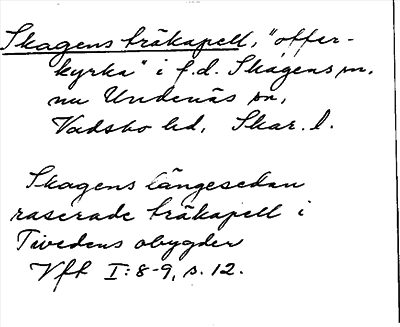 Skagens träkapell, "offer-
kyrka" i f.d. Skagens sn,
nu Undenäs sn,
Vadsbo hd, Skar. l.
Skagens längesedan
raserade träkapell i
Tivedens obygder
Vft I:8-9, s. 12.